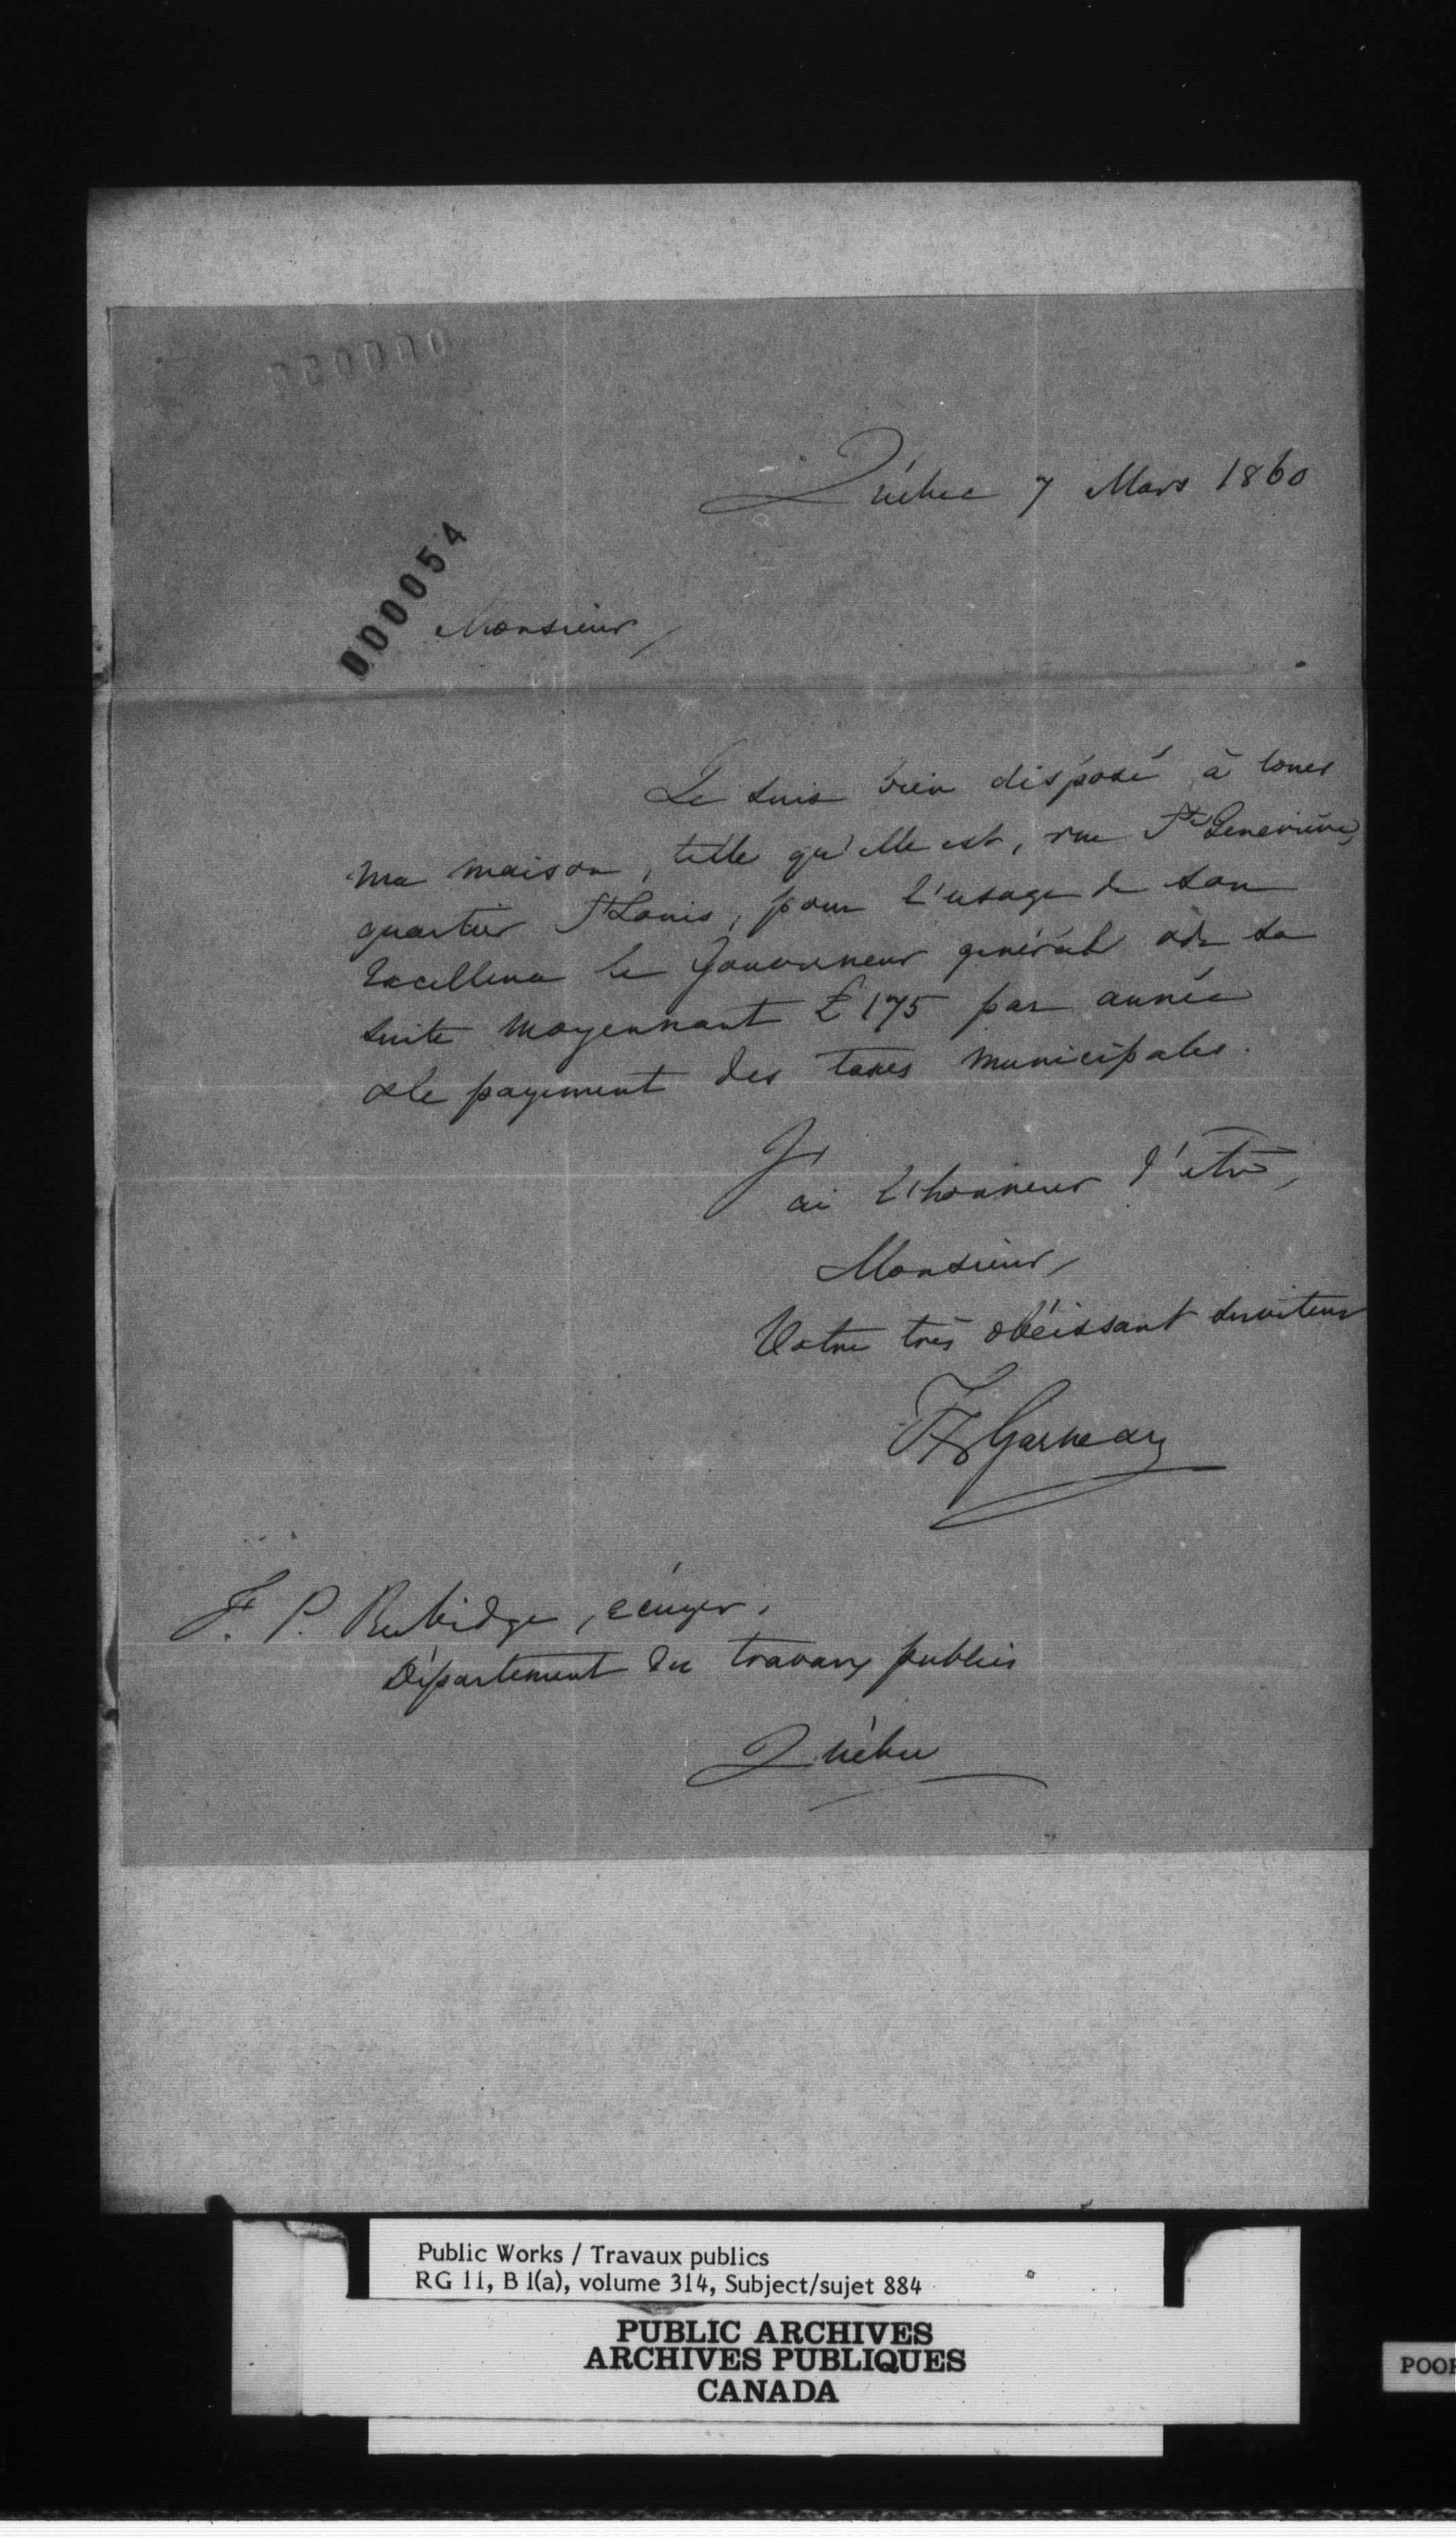 Québec 7 Mars 1860
000054
Monsieur,
Je suis bien disposé à louer
ma maison, telle qu'elle est, rue Ste Geneviève,
quartier St Louis, pour l'usage de son
Excellence le Gouverneur général & de sa
suite moyennant £175 par année
& le payement des taxes municipales.
J'ai l'honneur d'être,
Monsieur,
Votre très obéissant serviteur
FX Garneau
F. P. Rubidge, écuyer,
Département des travaux publics
Québec
Public Works / Travaux publics
RG 11, B 1(a), volume 314, Subject/sujet 884
PUBLIC ARCHIVES
ARCHIVES PUBLIQUES
CANADA